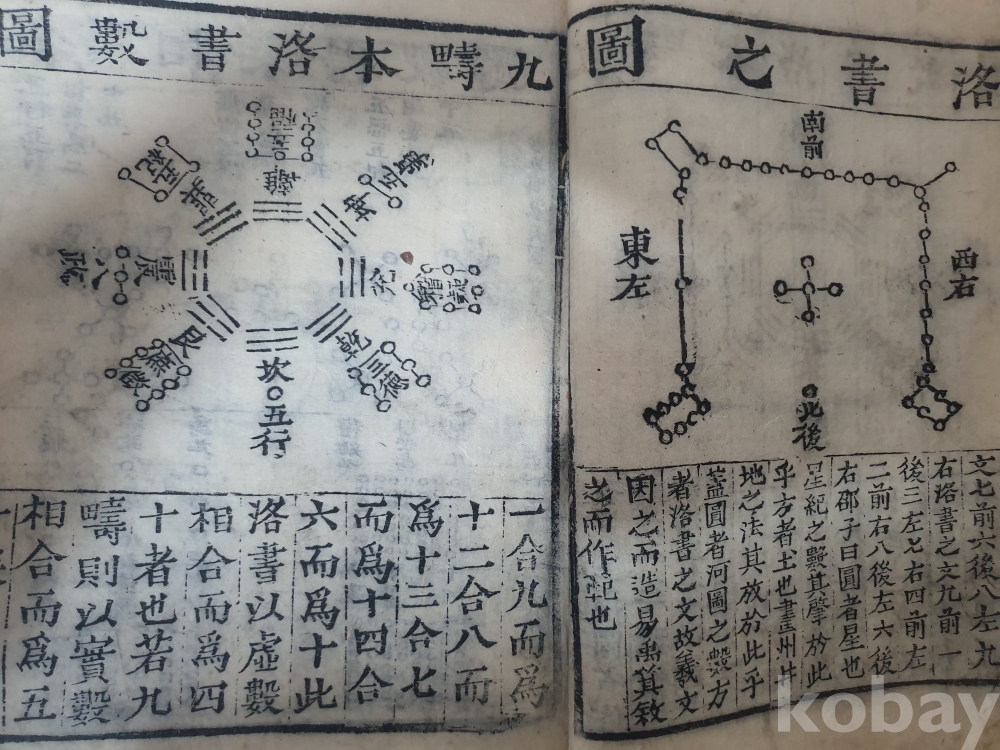 洛書之圖
南前
東左
西右
北後
文七前六後八左九
右洛書之文九前一
後三左七右四前左
二前右八後左六後
右邵子曰圓者星也
星紀之數其肇於此
乎方者土也畫州井
地之法其放於此乎
蓋圓者河圖之數方
者洛書之文故羲文
因之而造易禹箕敘
之而作範也
九疇本洛書數圖
離
坤
兌
乾
三德
坎
五行
艮
震
八政
巽
五紀
一合九而爲
十二合八而
爲十三合七
而爲十四合
六而爲十此
洛書以虛數
相合而爲四
十者也若九
疇則以實數
相合而爲五
kobay